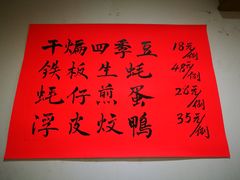 干煸四季豆 18元/例
铁板生蚝 48元/例
蚝仔煎蛋 26元/例
浮皮炆鴨 35元/例